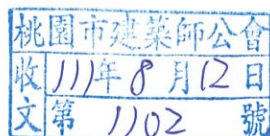 桃園市建築師公會
收 111年8月12日
文 第 1102 號